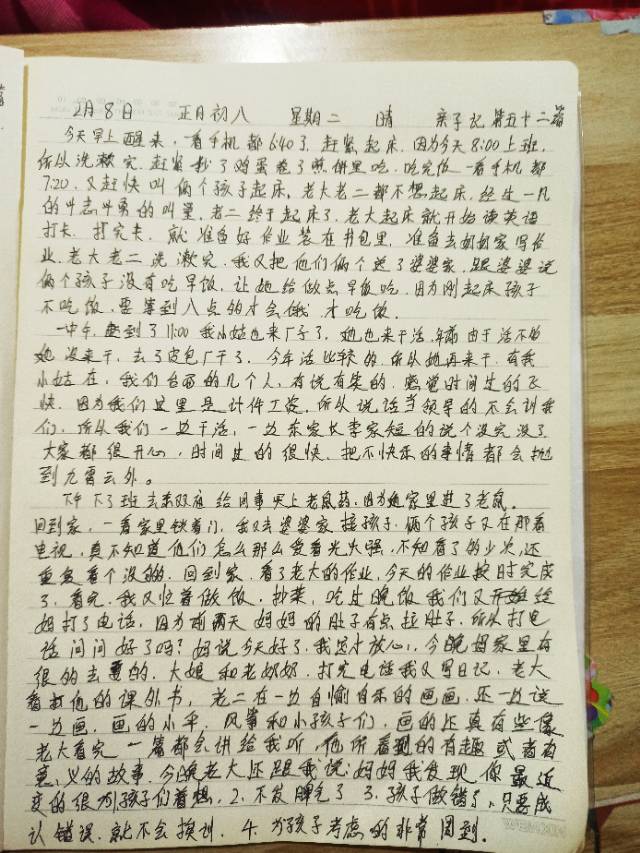 2月8日 正月初八 星期二 晴 亲子记 第五十二篇
今天早上醒来,一看手机都6:40了,赶紧起床,因为今天8:00上班,
所以洗漱完,赶紧抄了鸡蛋卷了煎饼里吃,吃完饭一看手机都
7:20,又赶快叫俩个孩子起床,老大老二都不想起床,经过一凡
的斗志斗勇的叫量,老二终于起床了,老大起床就开始读英语
打卡,打完卡,就准备好作业装在书包里,准备去奶奶家写作
业,老大老二洗漱完,我又把他们俩个送了婆婆家,跟婆婆说
俩个孩子没有吃早饭,让她给做点早饭吃,因为刚起床孩子
不吃饭,要等到八点的才会饿,才吃饭。
一中午,到了11:00我小姑也来厂子了,她也来干活,年前由于活不多
她没来干,去了皮包厂干了,今年活比较的,所以她再来干,有我
小姑在,我们台面的几个人,有说有笑的,感觉时间过的飞
快,因为我们这里是计件工资,所以说话当领导的不会训我
们,所以我们一边干活,一边东家长李家短的说个没完没了
大家都很开心,时间过的很快,把不快乐的事情都会抛
到九霄云外。
下午下了班去给同事买上老鼠药,因为她家里进了老鼠。
回到家,一看家里锁着门,我又去婆婆家接孩子,俩个孩子又在那看
电视,真不知道他们怎么那么爱看光头强,不知看了的少次,还
重复看个没的,回到家,看了老大的作业,今天的作业按时完成
了,看完,我又忙着做饭,抄菜,吃过晚饭我们又开始给
妈打了电话,因为前两天妈妈的肚子有点拉肚子,所以打电
话问问好了吗?妈说今天好了,我这才放心,今晚母家里有
很的去要的,大娘和老奶奶,打完电话我又写日记,老大
看找他的课外书,老二在一边自愉自乐的画画,还一边说
一边画,画的小车,风筝和小孩子们,画的还真有些像
老大看完一篇都会讲给我听,他所看到的有趣或者有
意义的故事,今晚老大还跟我说:妈妈我发现你最近
变的很为孩子们着想,2.不发脾气了 3.孩子做错了,只要成
认错误,就不会挨训,4.为孩子考虑的非常周到.